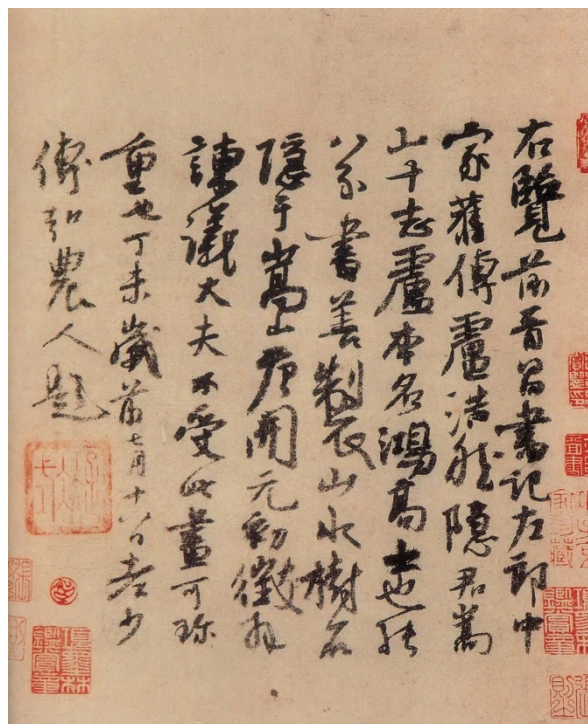 右覽前晉昌書記左郎中
家舊傳盧浩然隱君嵩
山十志盧本名鴻高士也能
八分書善製山水樹石
隱于嵩山唐開元初徵拜
諫議大夫不受此畫可珎
重也丁未歲前七月十八日老少
傅弘農人題
項墨林鑑賞章